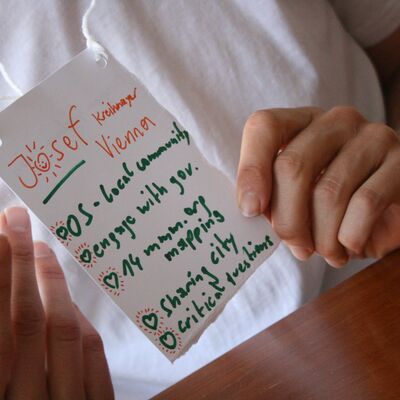 Josef Kreitmayer
Vienna
OS - Local community
engage with gov.
14 mmm.org
mapping
Sharing city
critical questions